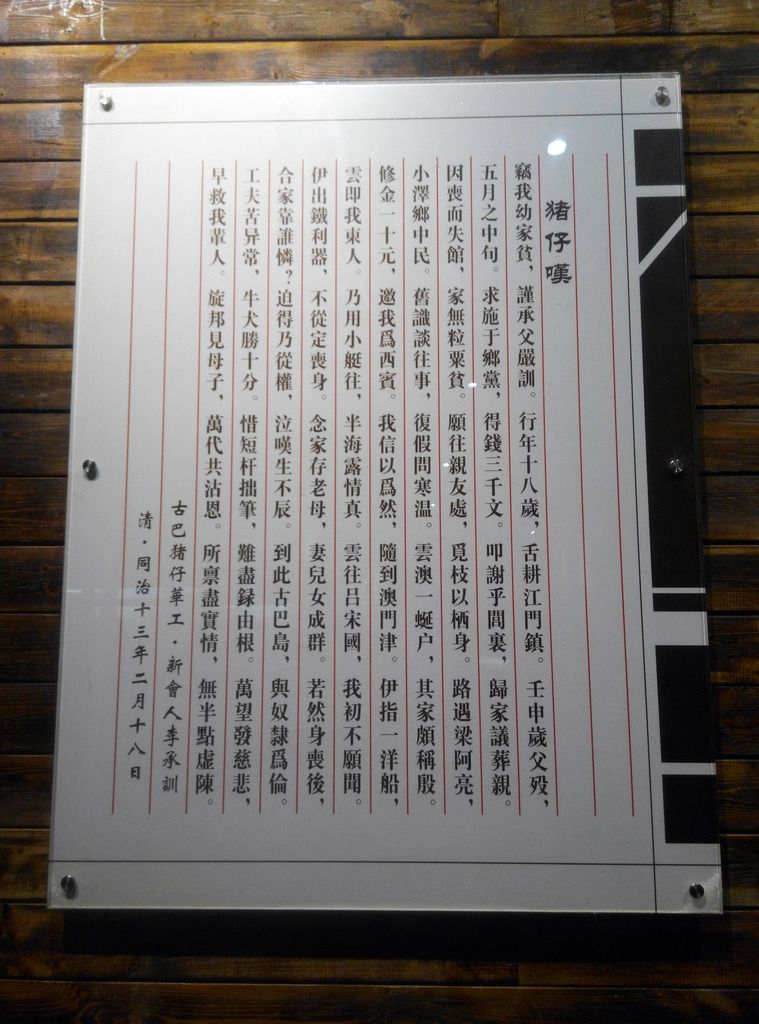 猪仔嘆
竊我幼家貧，謹承父嚴訓。行年十八歲，舌耕江門鎮。壬申歲父殁，
五月之中旬。求施于鄉黨，得錢三千文。叩謝乎閭裏，歸家議葬親。
因喪而失館，家無粒粟貧。願往親友處，覓枝以栖身。路遇梁阿亮，
小澤鄉中民。舊識談往事，復假問寒温。雲澳一蜒户，其家頗稱殷。
修金一十元，邀我爲西賓。我信以爲然，隨到澳門津。伊指一洋船，
雲即我東人。乃用小艇往，半海露情真。雲往吕宋國，我初不願聞。
伊出鐵利器，不從定喪身。念家存老母，妻兒女成群。若然身喪後，
合家靠誰憐？迫得乃從權，泣嘆生不辰。到此古巴島，與奴隸爲倫。
工夫苦异常，牛犬勝十分。惜短杆拙筆，難盡録由根。萬望發慈悲，
早救我輩人。旋邦見母子，萬代共沾恩。所禀盡實情，無半點虚陳。
古巴猪仔華工·新會人李承訓
清·同治十三年二月十八日